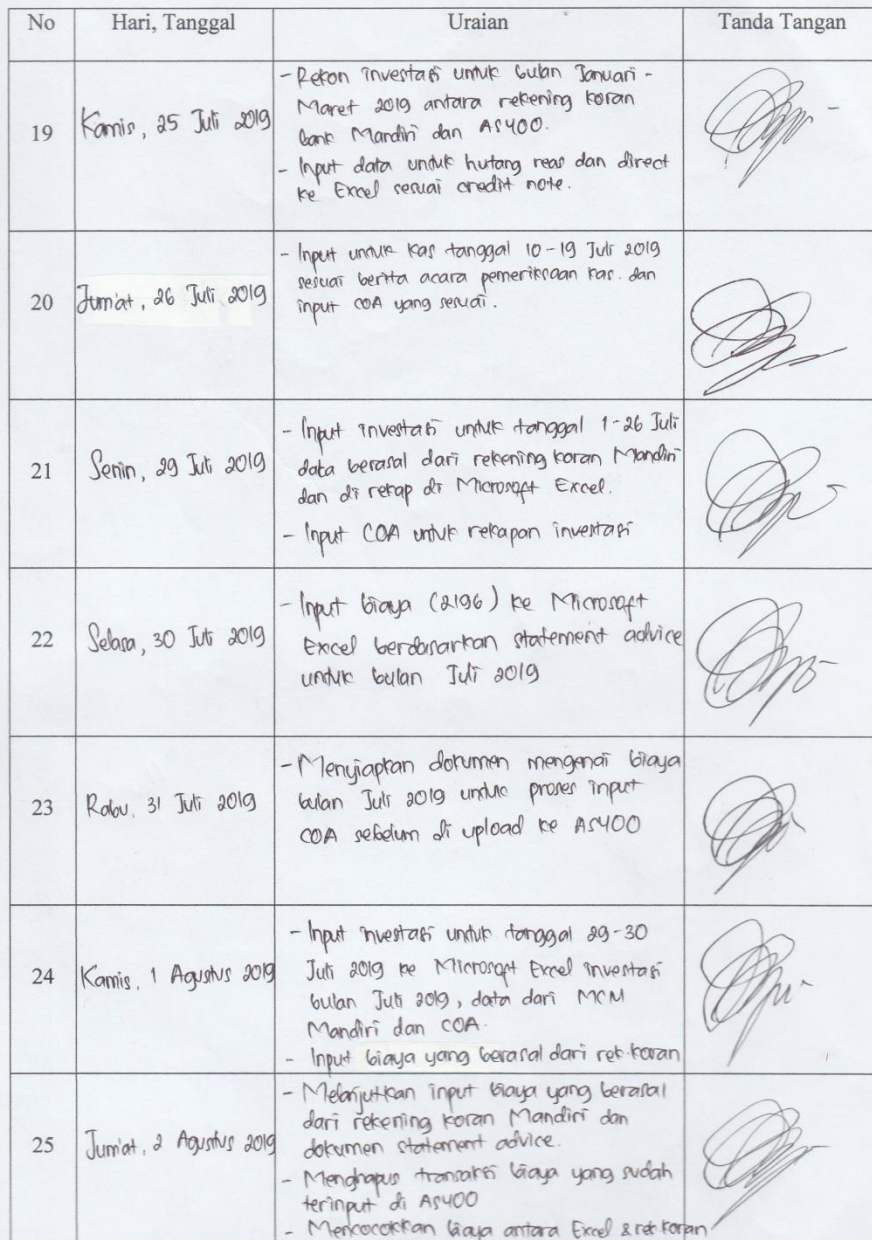 No Hari, Tanggal Uraian Tanda Tangan
19 Kamis, 25 Juli 2019
- Rekon investasi untuk bulan Januari -
Maret 2019 antara rekening koran
bank Mandiri dan AS400.
- Input data untuk hutang reas dan direct
ke Excel sesuai credit note.
20 Jum'at, 26 Juli 2019
- Input untuk kas tanggal 10-19 Juli 2019
sesuai berita acara pemeriksaan kas. dan
input COA yang sesuai.
21 Senin, 29 Juli 2019
- Input investasi untuk tanggal 1-26 Juli
data berasal dari rekening koran Mandiri
dan di rekap di Microsoft Excel.
- Input COA untuk rekapan investasi
22 Selasa, 30 Juli 2019
- Input biaya (2196) ke Microsoft
Excel berdasarkan statement advice
untuk bulan Juli 2019
23 Rabu, 31 Juli 2019
- Menyiapkan dokumen mengenai biaya
bulan Juli 2019 untuk proses input
COA sebelum di upload ke AS400
24 Kamis, 1 Agustus 2019
- Input investasi untuk tanggal 29-30
Juli 2019 ke Microsoft Excel investasi
bulan Juli 2019, data dari MCM
Mandiri dan COA.
- Input biaya yang berasal dari rek.koran
25 Jum'at, 2 Agustus 2019
- Melanjutkan input biaya yang berasal
dari rekening koran Mandiri dan
dokumen statement advice.
- Menghapus transaksi biaya yang sudah
terinput di AS400
- Mencocokkan biaya antara Excel & rek koran